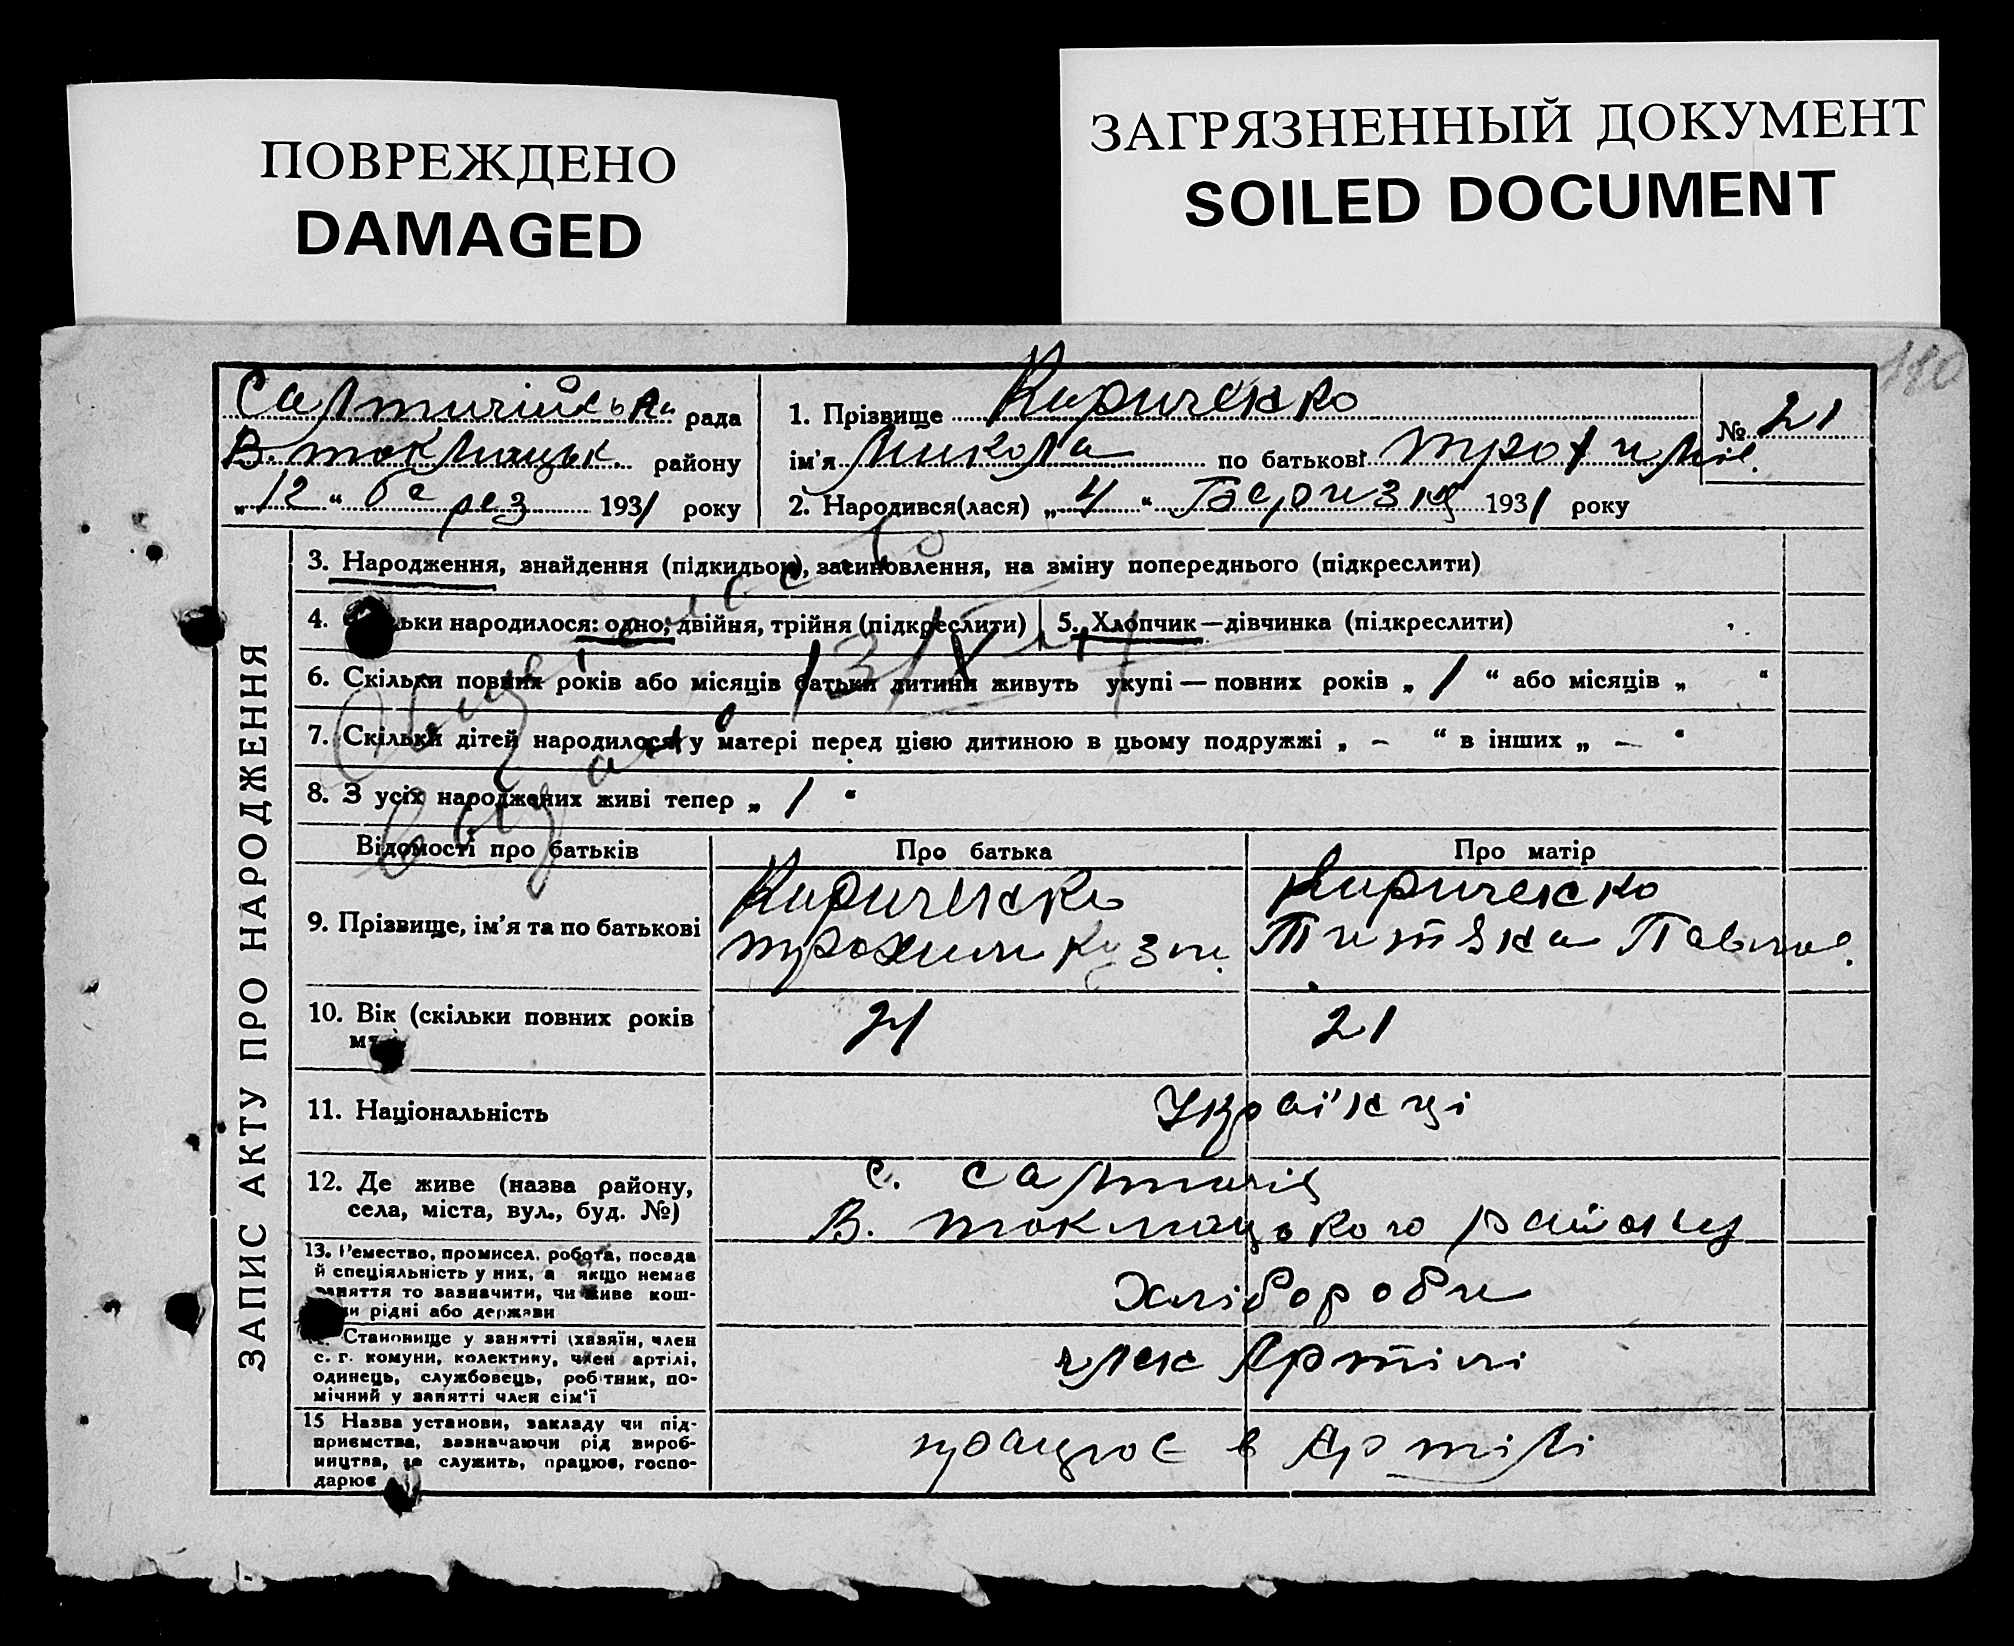 ПОВРЕЖДЕНО
DAMAGED
ЗАГРЯЗНЕННЫЙ ДОКУМЕНТ
SOILED DOCUMENT
180
Салтичійська рада
В. токмацьк. району
„ 12 “ берез 1931 року
1. Прізвище Кириченко
ім'я Микола по батькові трохимов.
№ 21
2. Народився(лася) „ 4 “ 1931 року
ЗАПИС АКТУ ПРО НАРОДЖЕННЯ
3. Народження, знайдення (підкидьок), засиновлення, на зміну попереднього (підкреслити)
4. ьки народилося: одно; двійня, трійня (підкреслити)
5. Хлопчик—дівчинка (підкреслити)
6. Скільки повних років або місяців батьки дитини живуть укупі — повних років „ 1 “ або місяців „ “
7. Скільки дітей народилося у матері перед цією дитиною в цьому подружжі „ – “ в інших „ — “
8. З усіх народжених живі тепер „ 1 “
Відомості про батьків
Про батька
Про матір
9. Прізвище, ім'я та по батькові
Кириченко
трохим Кузм.
Кириченко
Павлов.
10. Вік (скільки повних років
21
21
11. Національність
Українці
12. Де живе (назва району,
села, міста, вул., буд. №)
с. Салтичія
В. токмацького району
13. Ремество, промисел, робота, посада
й спеціяльність у них, а якщо немає
заняття то зазначити, чи живе кош-
рідні або держави
Хлібороби
Становище у занятті (хазяїн, член
с. г. комуни, колективу, член артілі,
одинець, службовець, робітник, по-
мічний у занятті член сім'ї
член Артілі
15 Назва установи, закладу чи під-
приємства, зазначаючи рід вироб-
ництва, де служить, працює, госпо-
дарює
працює в Артілі